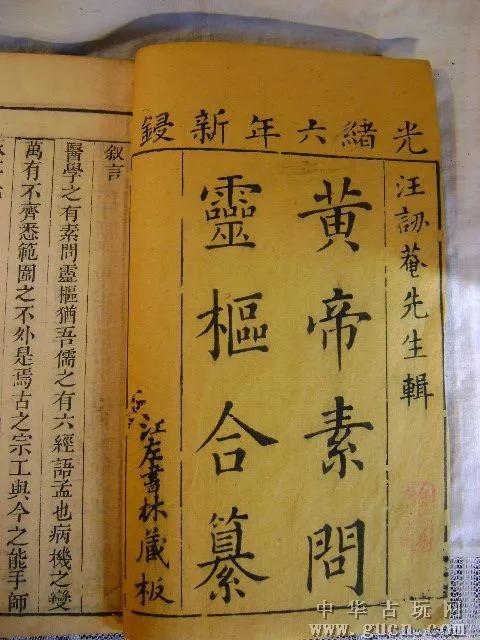 光緒六年新鋟
汪訒菴先生輯
黃帝素問
靈樞合纂
江左書林藏板
叙言
醫學之有素問靈樞猶吾儒之有六經語孟也病機之變
萬有不齊悉範圍之不外是焉古之宗工與今之能手師
中华古玩网
www.gucn.com